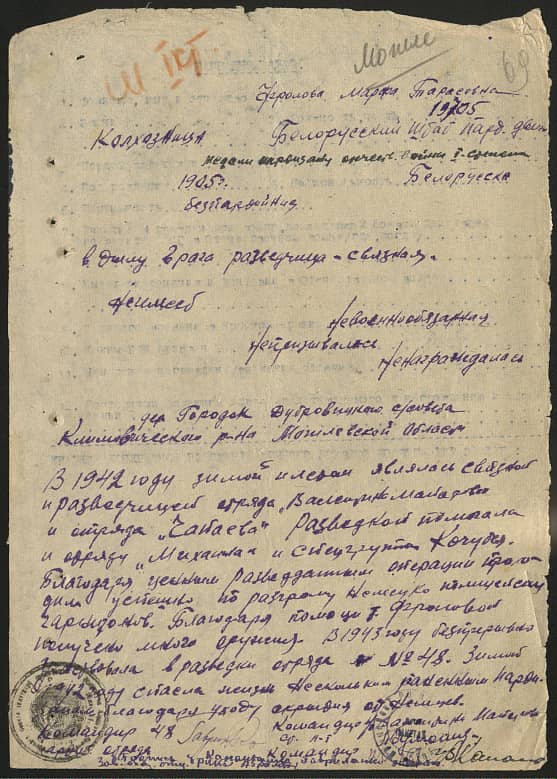 Могиле
69
III ІСТ
Фролова Марфа Тарасовна
1905
Колхозница Белорусский Штаб Парт. движ
медали партизану отечеств. войны I-степени
1905 г. Белоруска
беспартойная
в тылу врага разведчица - связная.
Не имееб
Невоеннообязанная
Непризывалась
Ненаграждалась
дер Городок Дубровицкого с/совета
Климовического р-на Могилевской Области
В 1942 году зимой и летом являлась связной
и разведчицей отряда "Валентин Майорова
и отряда "Чапаева" Разведкой помогала
и отряду "Михаила" и спецгруппам Кочубея.
Благодаря ценным разведданным операции прохо-
дили успешно по разгрому Немецко полицейских
гарнизонов. Благодаря помощи т. Фроловой
получено много оружия. В 1943 году безпрерывно
в разведки отряда № 48. Зимой
1942 году спасла жизнь Нескольким раненным Парти-
благодаря уходу от Немцев.
Командир 48 Командир Валентин Майоров
отряда
Командир